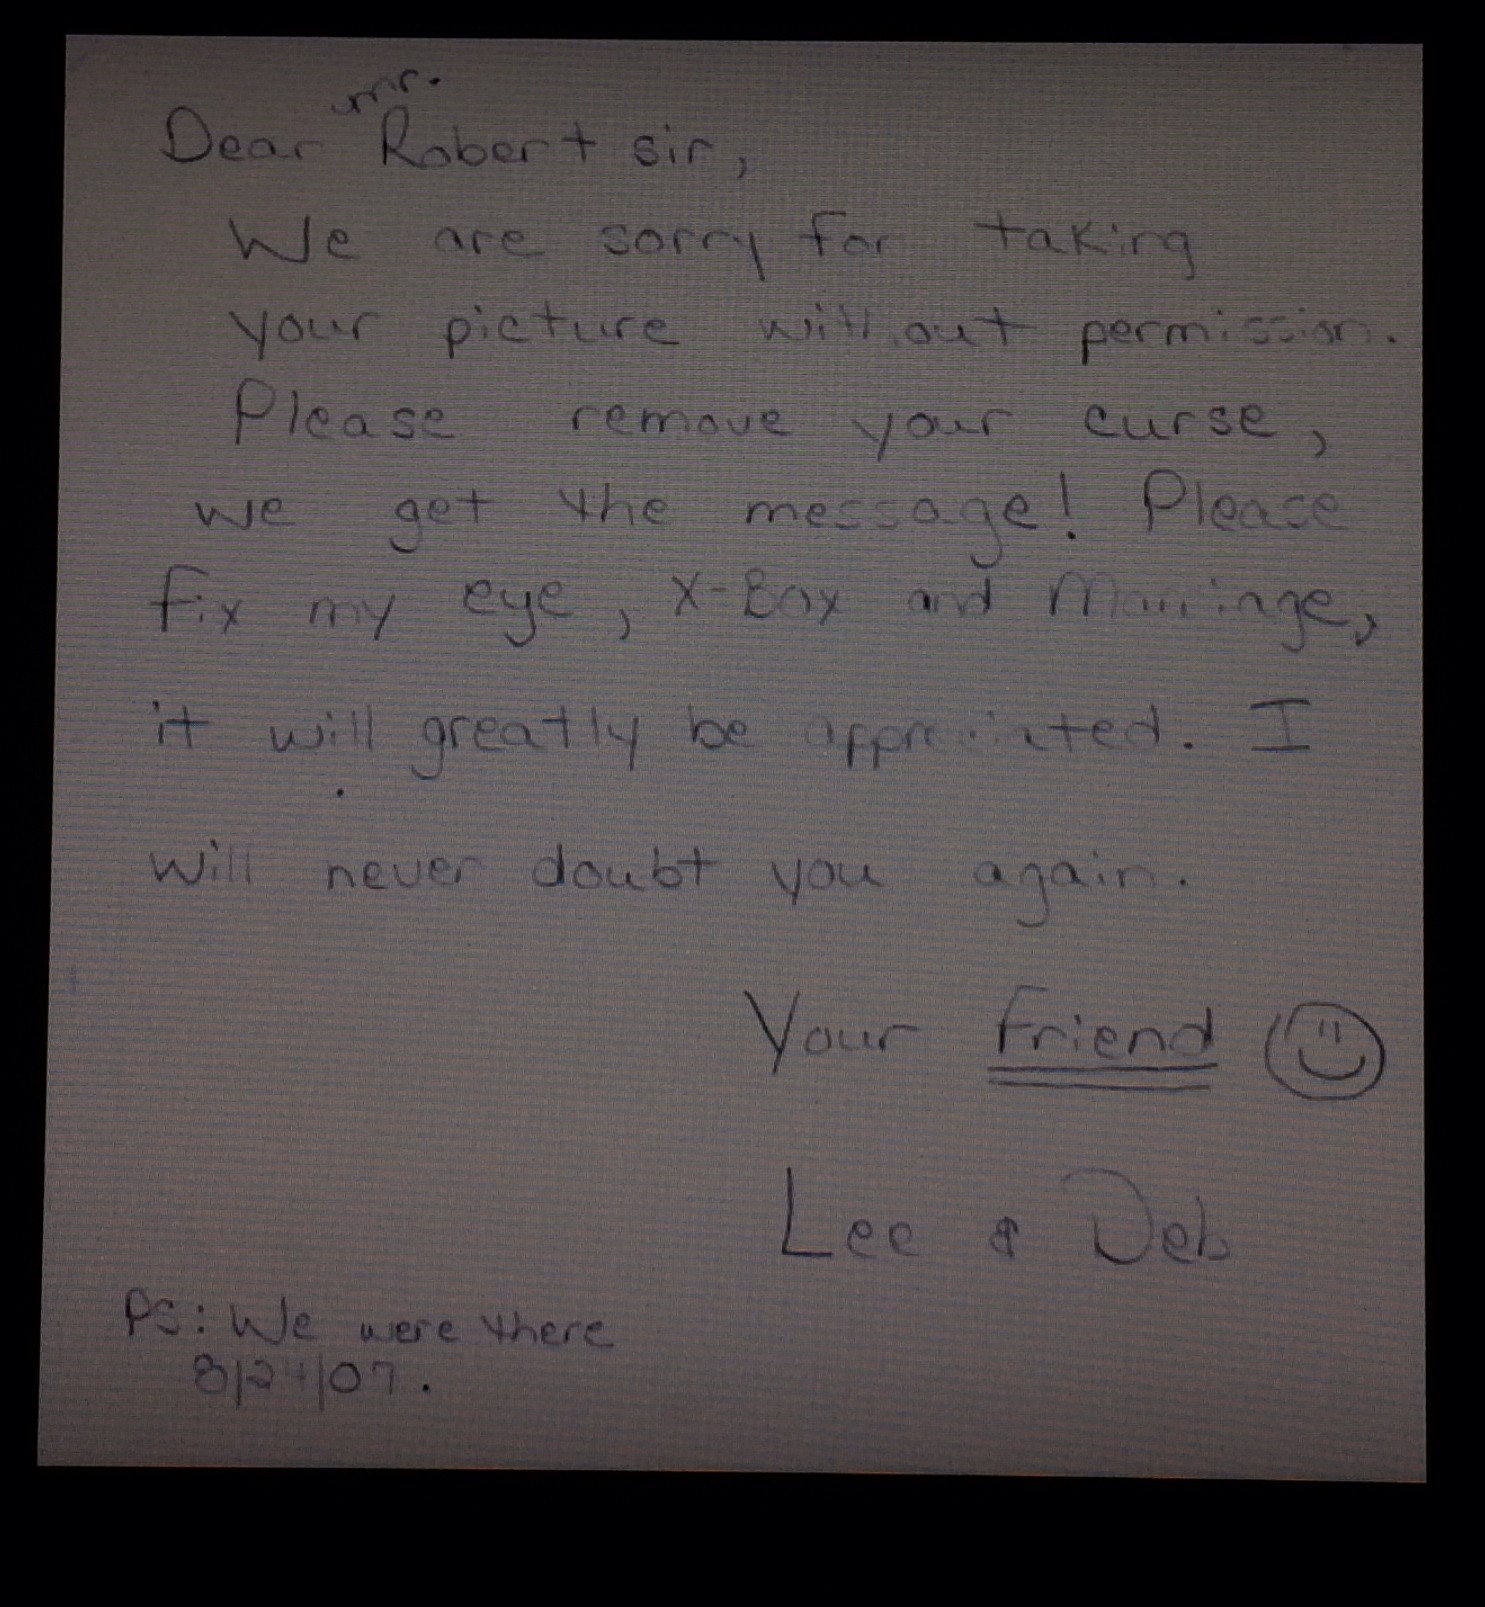 Dear mr. Robert sir,
We are sorry for taking
your picture without permission.
Please remove your curse,
we get the message! Please
fix my eye, X-Box and Marriage,
it will greatly be appreciated. I
will never doubt you again.
Your Friend
Lee & Deb
PS: We were there
8/24/07.